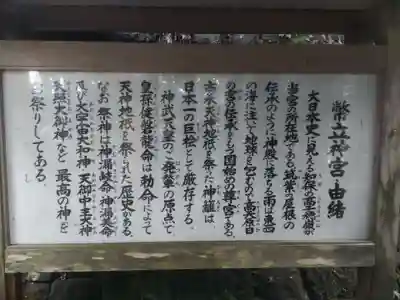 幣立神宮由緒
大日本史に見える知保の高千穂嶺が
当宮の所在地である。筑紫の屋根の
伝承のように神殿に落ちる雨は東西
の海に注いで地球を包むので高天原・日
の宮の伝承をもつ国始めの尊宮である。
古来天神地祇を祭った神籬は
日本一の巨桧として厳存する。
神武天皇のご発輦の原点で
皇孫健磐龍命は勅命によって
天神地祇を祭られた歴史がある。
なお祭神は神漏岐命 神漏美命
及び大宇宙大和神 天御中主大神
天照大御神など 最高の神を
お祭りしてある。